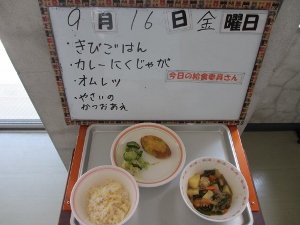 9月16日金曜日
・きびごはん
・カレーにくじゃが
今日の給食委員さん
・オムレツ
・やさいの
かつおあえ